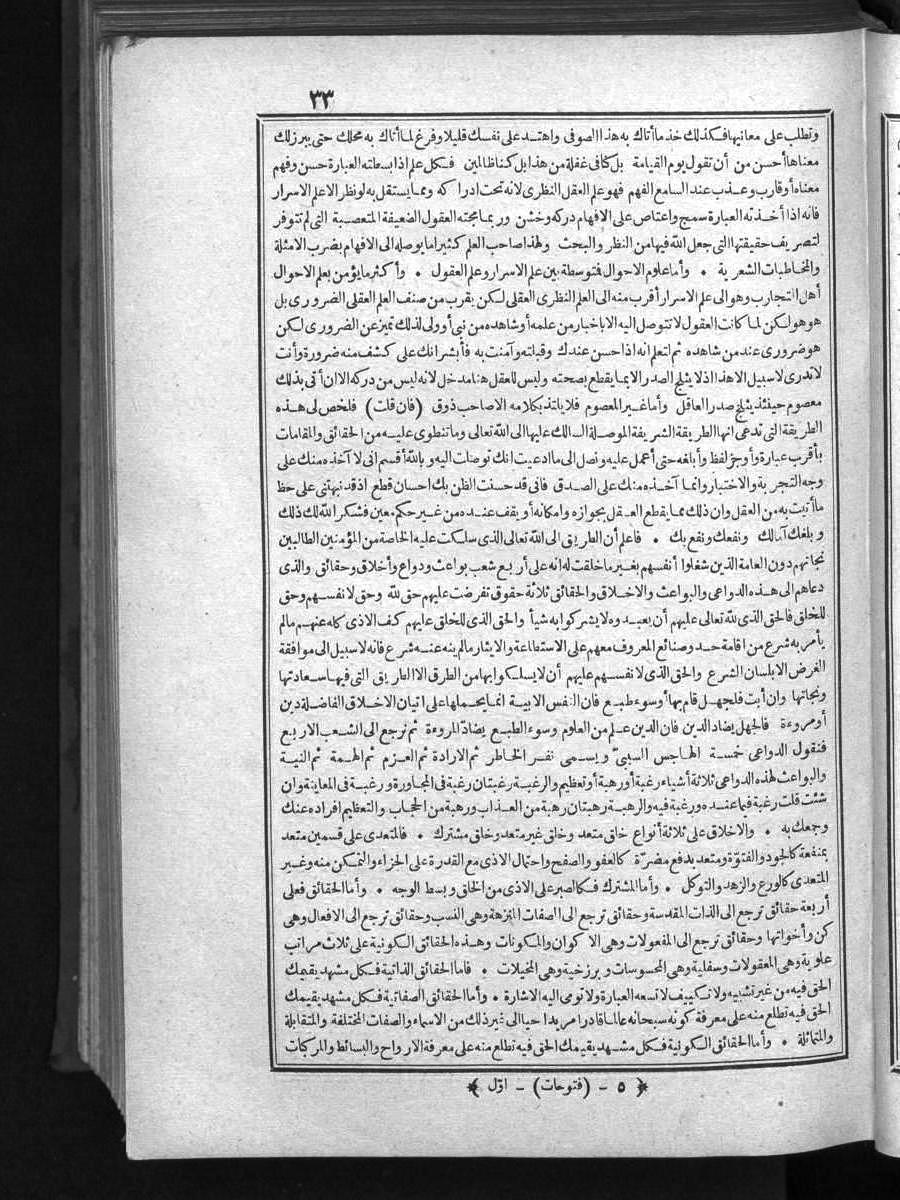 ٣٣
وتطلب على معانيها فكذلك خذ ما أتاك به هذا الصوفى واهتد على نفسك قليلا وفرغ لما أتاك به محلك حتى يبرزلك
معناها أحسن من أن تقول يوم القيامة بل كنا فى غفلة من هذا بل كنا ظالمين فكل علم اذا بسطته العبارة حسن وفهم
معناه أو قارب وعذب عند السامع الفهم فهو علم العقل النظرى لانه تحت ادراكه ومما يستقل به لو نظر الا علم الاسرار
فانه اذا أخذته العبارة سمج واعتاص على الافهام دركه وخشن وربما مجته العقول الضعيفة المتعصبة التى لم تتوفر
لتصريف حقيقتها التى جعل الله فيها من النظر والبحث ولهذا صاحب العلم كثيرا ما يوصله الى الافهام بضرب الامثلة
والمخاطبات الشعرية • وأما علوم الاحوال فتوسطة بين علم الاسرار وعلم العقول • وأكثر ما يؤمن بعلم الاحوال
أهل التجارب وهو الى علم الاسرار أقرب منه الى العلم النظرى العقلى لكن يقرب من صنف العلم العقلى الضرورى بل
هو هو لكن لما كانت العقول لا تتوصل اليه الا باخبار من علمه أو شاهده من نبى أو ولى لذلك تميز عن الضرورى لكن
هو ضرورى عند من شاهده ثم لتعلم انه اذا حسن عندك وقبلته وآمنت به فأبشر انك على كشف منه ضرورة وأنت
لا تدرى لا سبيل الا هذا اذ لا يثلج الصدر الا بما يقطع بصحته وليس للعقل هنا مدخل لانه ليس من دركه الا ان أتى بذلك
معصوم حينئذ يثلج صدر العاقل وأما غير المعصوم فلا يلتذ بكلامه الا صاحب ذوق (فان قلت) فلخص لى هذه
الطريقة التى تدعى انها الطريقة الشريفة الموصلة السالك عليها الى الله تعالى وما تنطوى عليه من الحقائق والمقامات
بأقرب عبارة وأوجز لفظ وأبلغه حتى أعمل عليه ونصل الى ما ادعيت انك توصلت اليه وبالله أقسم انى لا آخذه منك على
وجه التجربة والاختبار وانما آخذه منك على الصدق فانى قد حسنت الظن بك احسان قطع اذ قد نبهتنى على حظ
ما أتيت به من العقل وان ذلك مما يقطع العقل بجوازه وامكانه أو يقف عنده من غير حكم معين فشكر الله لك ذلك
وبلغك آمالك ونفعك ونفع بك • فاعلم أن الطريق الى الله تعالى الذى سلكت عليه الخاصة من المؤمنين الطالبين
نجاتهم دون العامة الذين شغلوا أنفسهم بغير ما خلقت له انه على أربع شعب بواعث ودواع وأخلاق وحقائق والذى
دعاهم الى هذه الدواعى والبواعث والاخلاق والحقائق ثلاثة حقوق تفرضت عليهم حق لله وحق لانفسهم وحق
للخلق فالحق الذى لله تعالى عليهم أن يعبدوه لا يشركوا به شيأ والحق الذى للخلق عليهم كف الاذى كله عنهم ما لم
يأمر به شرع من اقامة حد وصنائع المعروف معهم على الاستطاعة والايثار ما لم ينه عنه شرع فانه لا سبيل الى موافقة
الغرض الا بلسان الشرع والحق الذى لانفسهم عليهم أن لا يسلكوا بها من الطرق الا الطريق التى فيها سعادتها
ونجاتها وان أبت فلجهل قام بها أو سوء طبع فان النفس الابية انما يحملها على اتيان الاخلاق الفاضلة دين
أو مروءة فالجهل يضاد الدين فان الدين علم من العلوم وسوء الطبع يضاد المروءة ثم نرجع الى الشعب الاربع
فنقول الدواعى خمسة الهاجس السببى ويسمى نقر الخاطر ثم الارادة ثم العزم ثم الهمة ثم النية
والبواعث لهذه الدواعى ثلاثة أشياء رغبة أو رهبة أو تعظيم والرغبة رغبتان رغبة فى المجاورة ورغبة فى المعاينة وان
شئت قلت رغبة فيما عنده ورغبة فيه والرهبة رهبتان رهبة من العذاب ورهبة من الحجاب والتعظيم افراده عنك
وجمعك به • والاخلاق على ثلاثة أنواع خلق متعد وخلق غير متعد وخلق مشترك • فالمتعدى على قسمين متعد
بمنفعة كالجود والفتوة ومتعد بدفع مضرّة كالعفو والصفح واحتمال الاذى مع القدرة على الجزاء والتمكن منه وغير
المتعدى كالورع والزهد والتوكل • وأما المشترك فكالصبر على الاذى من الخلق وبسط الوجه • وأما الحقائق فعلى
أربعة حقائق ترجع الى الذات المقدسة وحقائق ترجع الى الصفات المنزهة وهى النسب وحقائق ترجع الى الافعال وهى
كن وأخواتها وحقائق ترجع الى المفعولات وهى الاكوان والمكونات وهذه الحقائق الكونية على ثلاث مراتب
علوية وهى المعقولات وسفلية وهى المحسوسات وبرزخية وهى المخيلات • فاما الحقائق الذاتية فكل مشهد يقيمك
الحق فيه من غير تشبيه ولا تكييف لا تسعه العبارة ولا تومى اليه الاشارة • وأما الحقائق الصفاتية فكل مشهد يقيمك
الحق فيه تطلع منه على معرفة كونه سبحانه عالما قادرا مريدا حيا الى غير ذلك من الاسماء والصفات المختلفة والمتقابلة
والمتماثلة • وأما الحقائق الكونية فكل مشهد يقيمك الحق فيه تطلع منه على معرفة الارواح والبسائط والمركبات
﴿ ٥ - (فتوحات) - اوّل ﴾